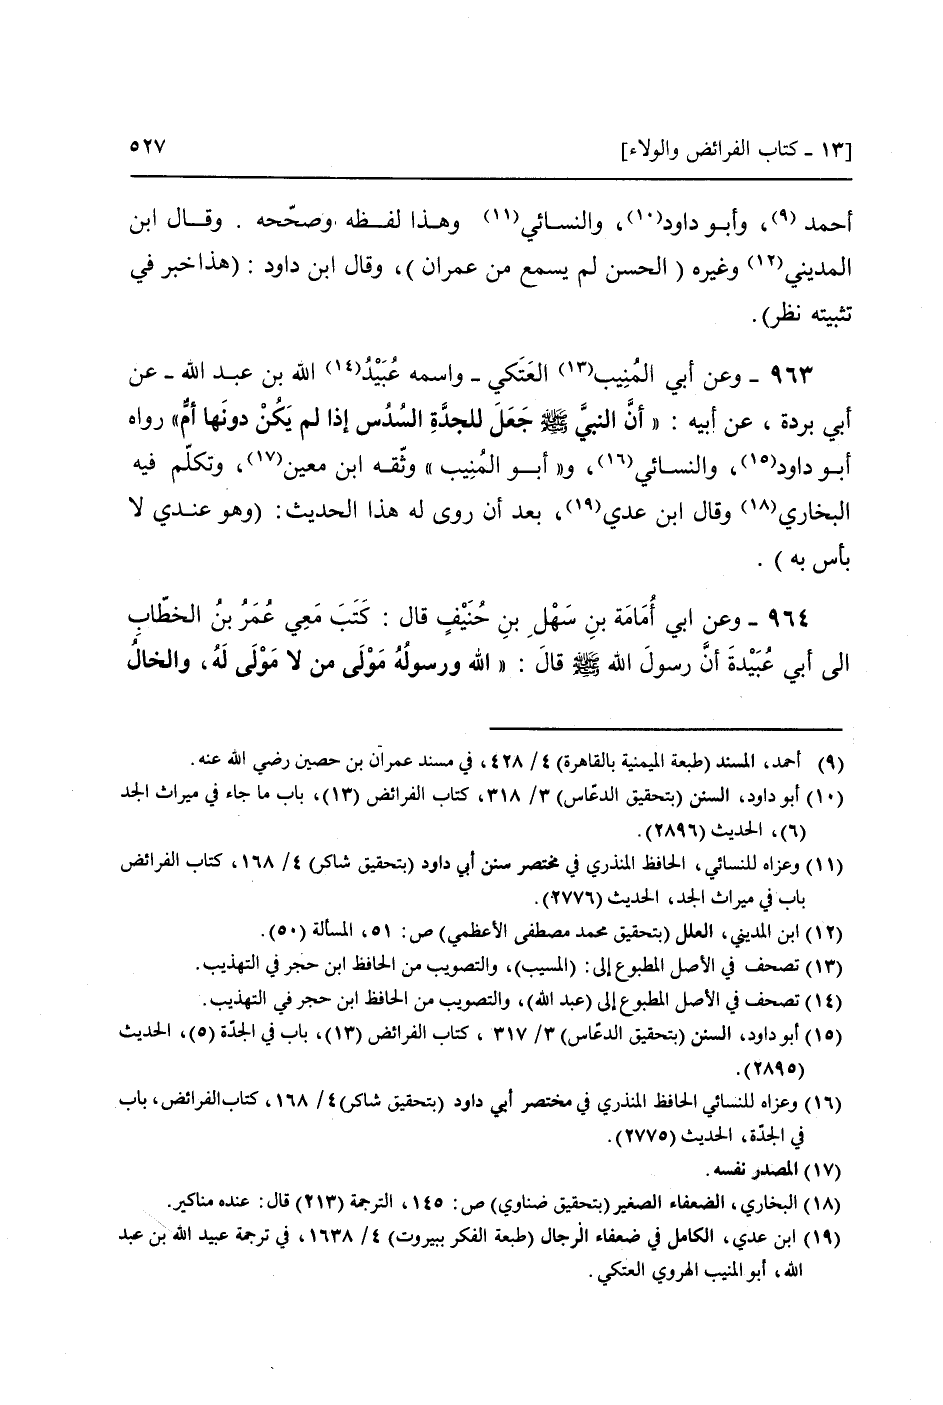 [١٣ ـ كتاب الفرائض والولاء]
٥٢٧
أحمد (٩)، وأبـو داود(١٠)، والنسـائي(١١) وهـذا لفـظه وصحّحه . وقـال ابن
المديني(١٢) وغيره ( الحسن لم يسمع من عمران )، وقال ابن داود : (هذاخبر في
تثبيته نظر).
٩٦٣ ـ وعن أبي المُنِيب(١٣) العَتَكي ـ واسمه عُبَيْدُ(١٤) الله بن عبـد الله ـ عن
أبي بردة ، عن أبيه : « أنَّ النبيَّ ﷺ جَعَلَ للجدَّةِ السُدُس إذا لم يَكُنْ دونَها أمٌّ» رواه
أبـو داود(١٥)، والنسـائي(١٦)، و« أبـو المُنِيب » وثّقـه ابن معين(١٧)، وتكلّم فيه
البخاري(١٨) وقال ابن عدي(١٩)، بعد أن روى له هذا الحديث: (وهو عنـدي لا
بأس به ) .
٩٦٤ ـ وعن ابي أُمَامَة بنِ سَهْلِ بنِ حُنَيْفٍ قال : كَتَبَ مَعِي عُمَرُ بنُ الخطّابِ
الى أبي عُبَيْدةَ أنَّ رسولَ الله ﷺ قالَ : « الله ورسولُهُ مَوْلَى من لا مَوْلَى لَهُ، والخالُ
(٩) أحمد، المسند (طبعة الميمنية بالقاهرة) ٤/ ٤٢٨، في مسند عمران بن حصين رضي الله عنه.
(١٠) أبو داود، السنن (بتحقيق الدعّاس) ٣/ ٣١٨، كتاب الفرائض (١٣)، باب ما جاء في ميراث الجد
(٦)، الحديث (٢٨٩٦).
(١١) وعزاه للنسائي، الحافظ المنذري في مختصر سنن أبي داود (بتحقيق شاكر) ٤/ ١٦٨، كتاب الفرائض
باب في ميراث الجد، الحديث (٢٧٧٦).
(١٢) ابن المديني، العلل (بتحقيق محمد مصطفى الأعظمي) ص: ٥١، المسألة (٥٠).
(١٣) تصحف في الأصل المطبوع إلى: (المسيب)، والتصويب من الحافظ ابن حجر في التهذيب.
(١٤) تصحف في الأصل المطبوع إلى (عبد الله)، والتصويب من الحافظ ابن حجر في التهذيب.
(١٥) أبو داود، السنن (بتحقيق الدعّاس) ٣/ ٣١٧ ، كتاب الفرائض (١٣)، باب في الجدّة (٥)، الحديث
(٢٨٩٥).
(١٦) وعزاه للنسائي الحافظ المنذري في مختصر أبي داود (بتحقيق شاكر)٤/ ١٦٨، كتاب الفرائض، باب
في الجدّة، الحديث (٢٧٧٥).
(١٧) المصدر نفسه.
(١٨) البخاري، الضعفاء الصغير (بتحقيق ضناوي) ص: ١٤٥، الترجمة (٢١٣) قال: عنده مناكير.
(١٩) ابن عدي، الكامل في ضعفاء الرجال (طبعة الفكر ببيروت) ٤/ ١٦٣٨، في ترجمة عبيد الله بن عبد
الله، أبو المنيب الهروي العتكي.